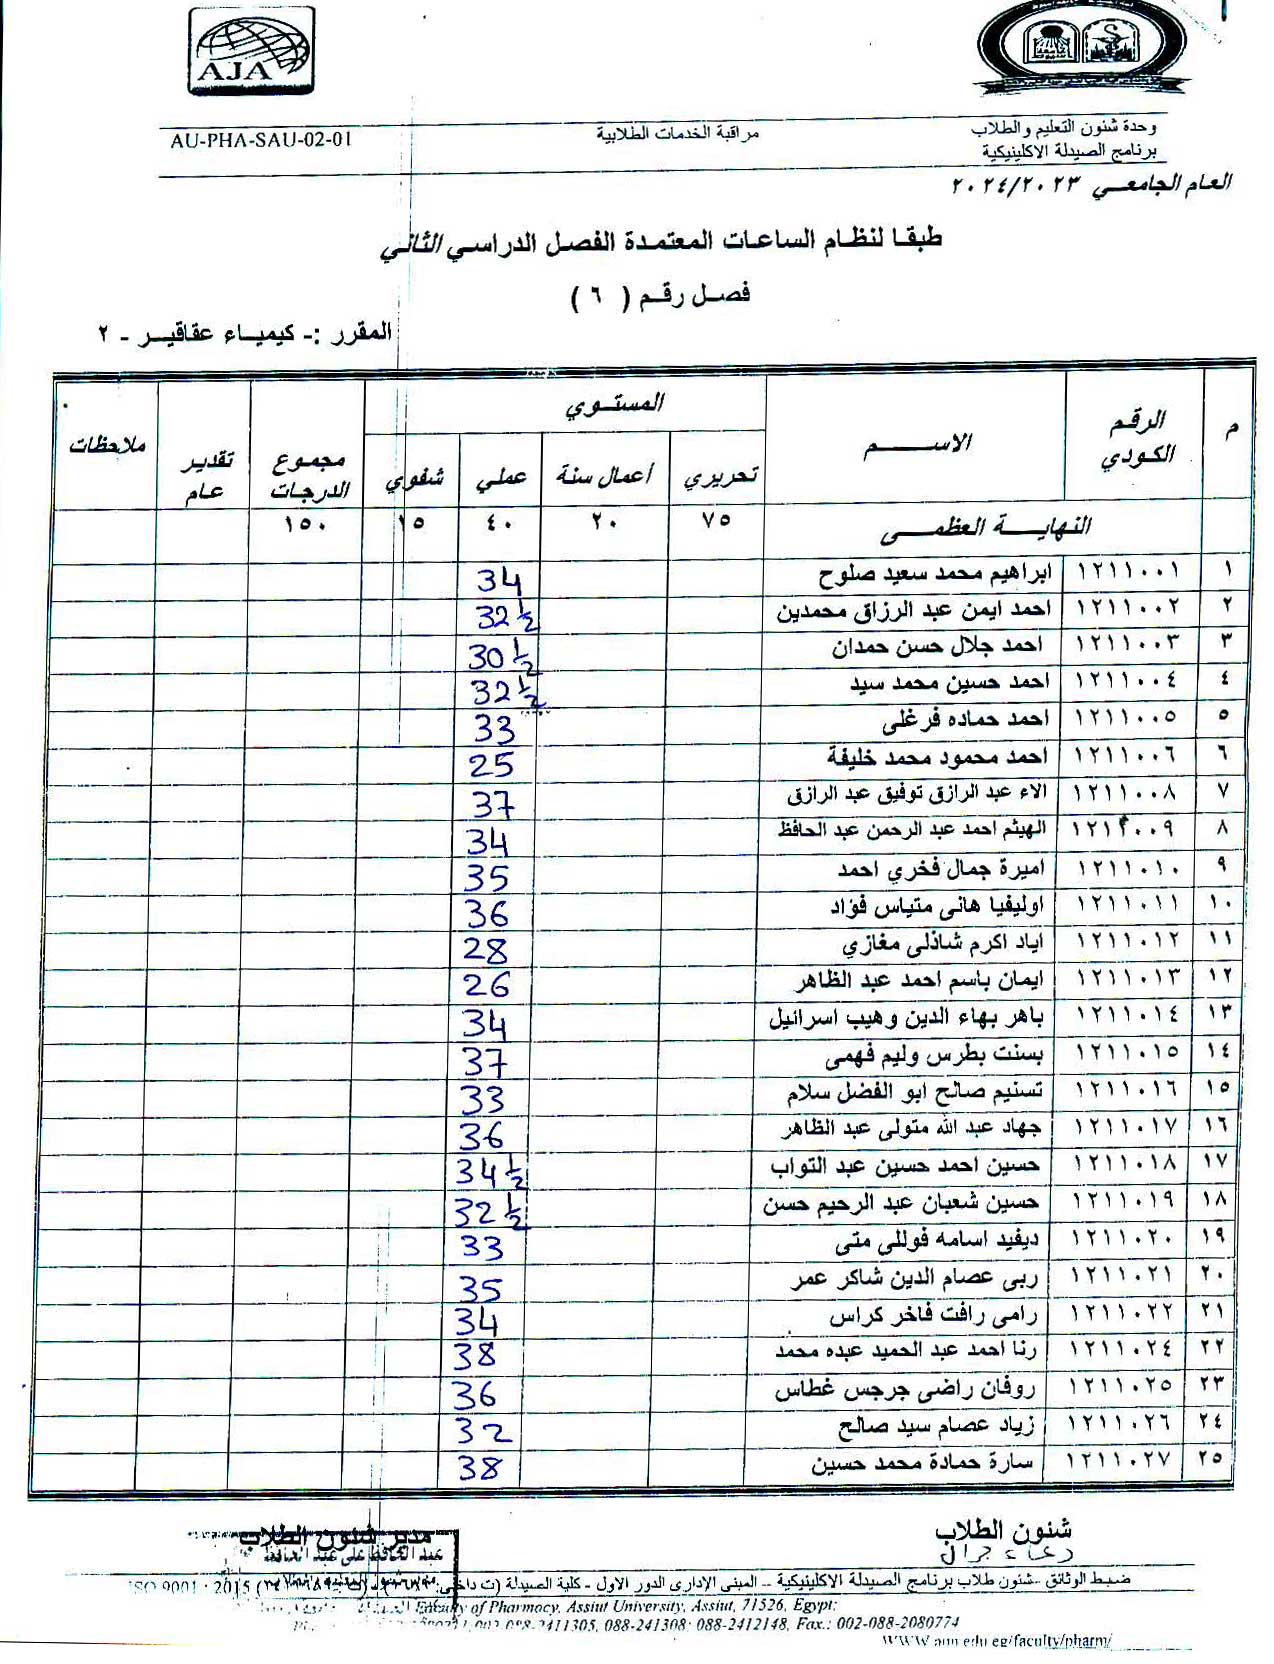 AJA
وحدة شئون التعليم والطلاب
برنامج الصيدلة الاكلينيكية
مراقبة الخدمات الطلابية
AU-PHA-SAU-02-01
العام الجامعي ٢٠٢٤/٢٠٢٣
طبقا لنظام الساعات المعتمدة الفصل الدراسي الثاني
فصل رقم ( ٦ )
المقرر :- كيمياء عقاقير - ٢
م الرقم الكودي الاسم المستوي مجموع الدرجات تقدير عام ملاحظات
تحريري أعمال سنة عملي شفوي
النهاية العظمى ٧٥ ٢٠ ٤٠ ١٥ ١٥٠
١ ١٢١١٠٠١ ابراهيم محمد سعيد صلوح 34
٢ ١٢١١٠٠٢ احمد ايمن عبد الرزاق محمدين 32 ½
٣ ١٢١١٠٠٣ احمد جلال حسن حمدان 30 ½
٤ ١٢١١٠٠٤ احمد حسين محمد سيد 32 ½
٥ ١٢١١٠٠٥ احمد حماده فرغلى 33
٦ ١٢١١٠٠٦ احمد محمود محمد خليفة 25
٧ ١٢١١٠٠٨ الاء عبد الرازق توفيق عبد الرازق 37
٨ ١٢١١٠٠٩ الهيثم احمد عبد الرحمن عبد الحافظ 34
٩ ١٢١١٠١٠ اميرة جمال فخري احمد 35
١٠ ١٢١١٠١١ اوليفيا هانى متياس فؤاد 36
١١ ١٢١١٠١٢ اياد اكرم شاذلى مغازي 28
١٢ ١٢١١٠١٣ ايمان باسم احمد عبد الظاهر 26
١٣ ١٢١١٠١٤ باهر بهاء الدين وهيب اسرائيل 34
١٤ ١٢١١٠١٥ بسنت بطرس وليم فهمى 37
١٥ ١٢١١٠١٦ تسنيم صالح ابو الفضل سلام 33
١٦ ١٢١١٠١٧ جهاد عبد الله متولى عبد الظاهر 36
١٧ ١٢١١٠١٨ حسين احمد حسين عبد التواب 34 ½
١٨ ١٢١١٠١٩ حسين شعبان عبد الرحيم حسن 32 ½
١٩ ١٢١١٠٢٠ ديفيد اسامه فوللى متى 33
٢٠ ١٢١١٠٢١ ربى عصام الدين شاكر عمر 35
٢١ ١٢١١٠٢٢ رامى رافت فاخر كراس 34
٢٢ ١٢١١٠٢٤ رنا احمد عبد الحميد عبده محمد 38
٢٣ ١٢١١٠٢٥ روفان راضى جرجس غطاس 36
٢٤ ١٢١١٠٢٦ زياد عصام سيد صالح 32
٢٥ ١٢١١٠٢٧ سارة حمادة محمد حسين 38
شئون الطلاب مدير شئون الطلاب
دعاء جمال
ضبط الوثائق -شئون طلاب برنامج الصيدلة الاكلينيكية – المبنى الإدارى الدور الاول - كلية الصيدلة (ت داخلى ISO 9001 : 2015
Faculty of Pharmacy, Assiut University, Assiut, 71526, Egypt;
002-088-2411305, 088-241308; 088-2412148, Fax.: 002-088-2080774
WWW.aun.edu.eg/faculty/pharm/